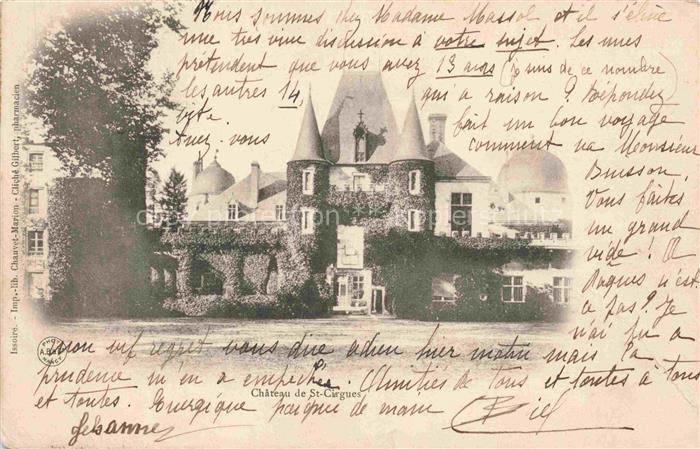 Nous sommes chez Madame Massol et il s'élève
une très vive discussion à votre sujet. Les unes
prétendent que vous avez 13 ans (je suis de ce nombre)
les autres 14, qui a raison ? Répondez
vite.
Avez-vous fait un bon voyage
comment va Monsieur
Buisson.
Vous faites
un grand
vide ! A
Pâques n'est
ce pas ? Je
n'ai pu a
mon vif regret vous dire adieu hier matin mais la
prudence m'en a empêchée. Amitiés de tous et toutes à tous
et toutes. Energique poignée de main
Château de St-Cirgues
Issoire. - Imp.-lib. Chauvet-Marion - Cliché Gilbert, pharmacien